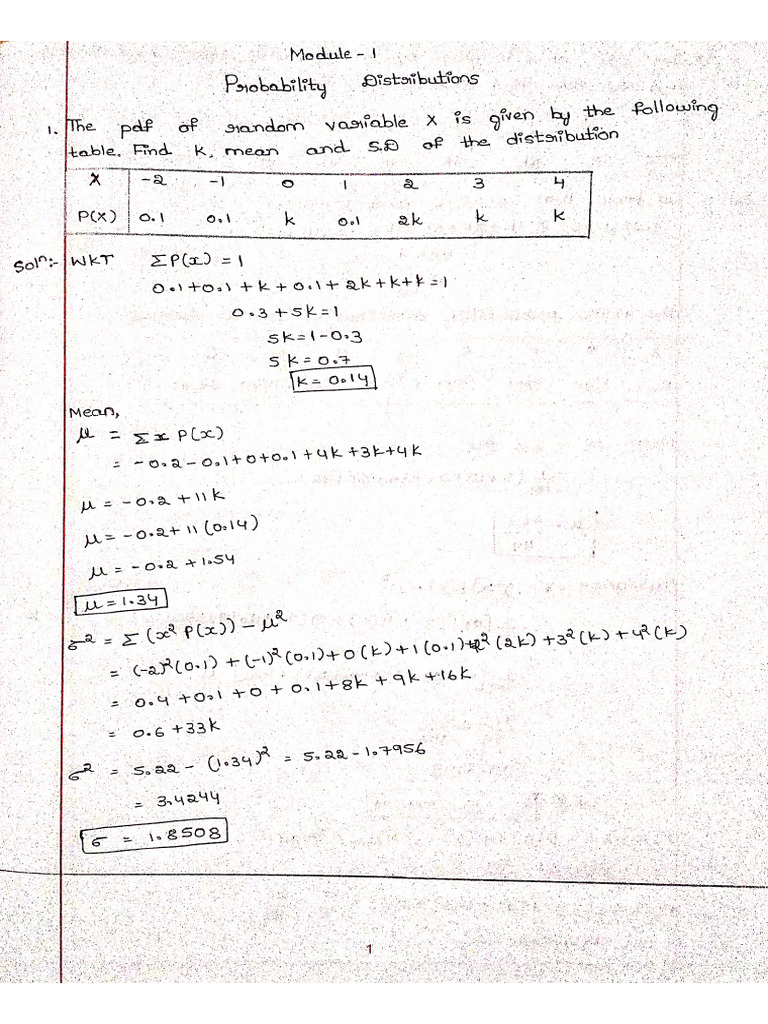 Module - 1
Probability Distributions
1. The pdf of random variable X is given by the following
table. Find K, mean and S.D of the distribution
X -2 -1 0 1 2 3 4
P(X) 0.1 0.1 k 0.1 2k k k
Solⁿ:- WKT ΣP(x) = 1
0.1+0.1+k+0.1+2k+k+k=1
0.3+5k=1
5k=1-0.3
5k=0.7
k=0.14
Mean,
μ = Σx P(x)
= -0.2-0.1+0+0.1+4k+3k+4k
μ = -0.2+11k
μ = -0.2+11(0.14)
μ = -0.2+1.54
μ=1.34
σ² = Σ(x² P(x)) - μ²
= (-2)²(0.1)+(-1)²(0.1)+0(k)+1(0.1)+2²(2k)+3²(k)+4²(k)
= 0.4+0.1+0+0.1+8k+9k+16k
= 0.6+33k
σ² = 5.22-(1.34)² = 5.22-1.7956
= 3.4244
σ = 1.8508
1